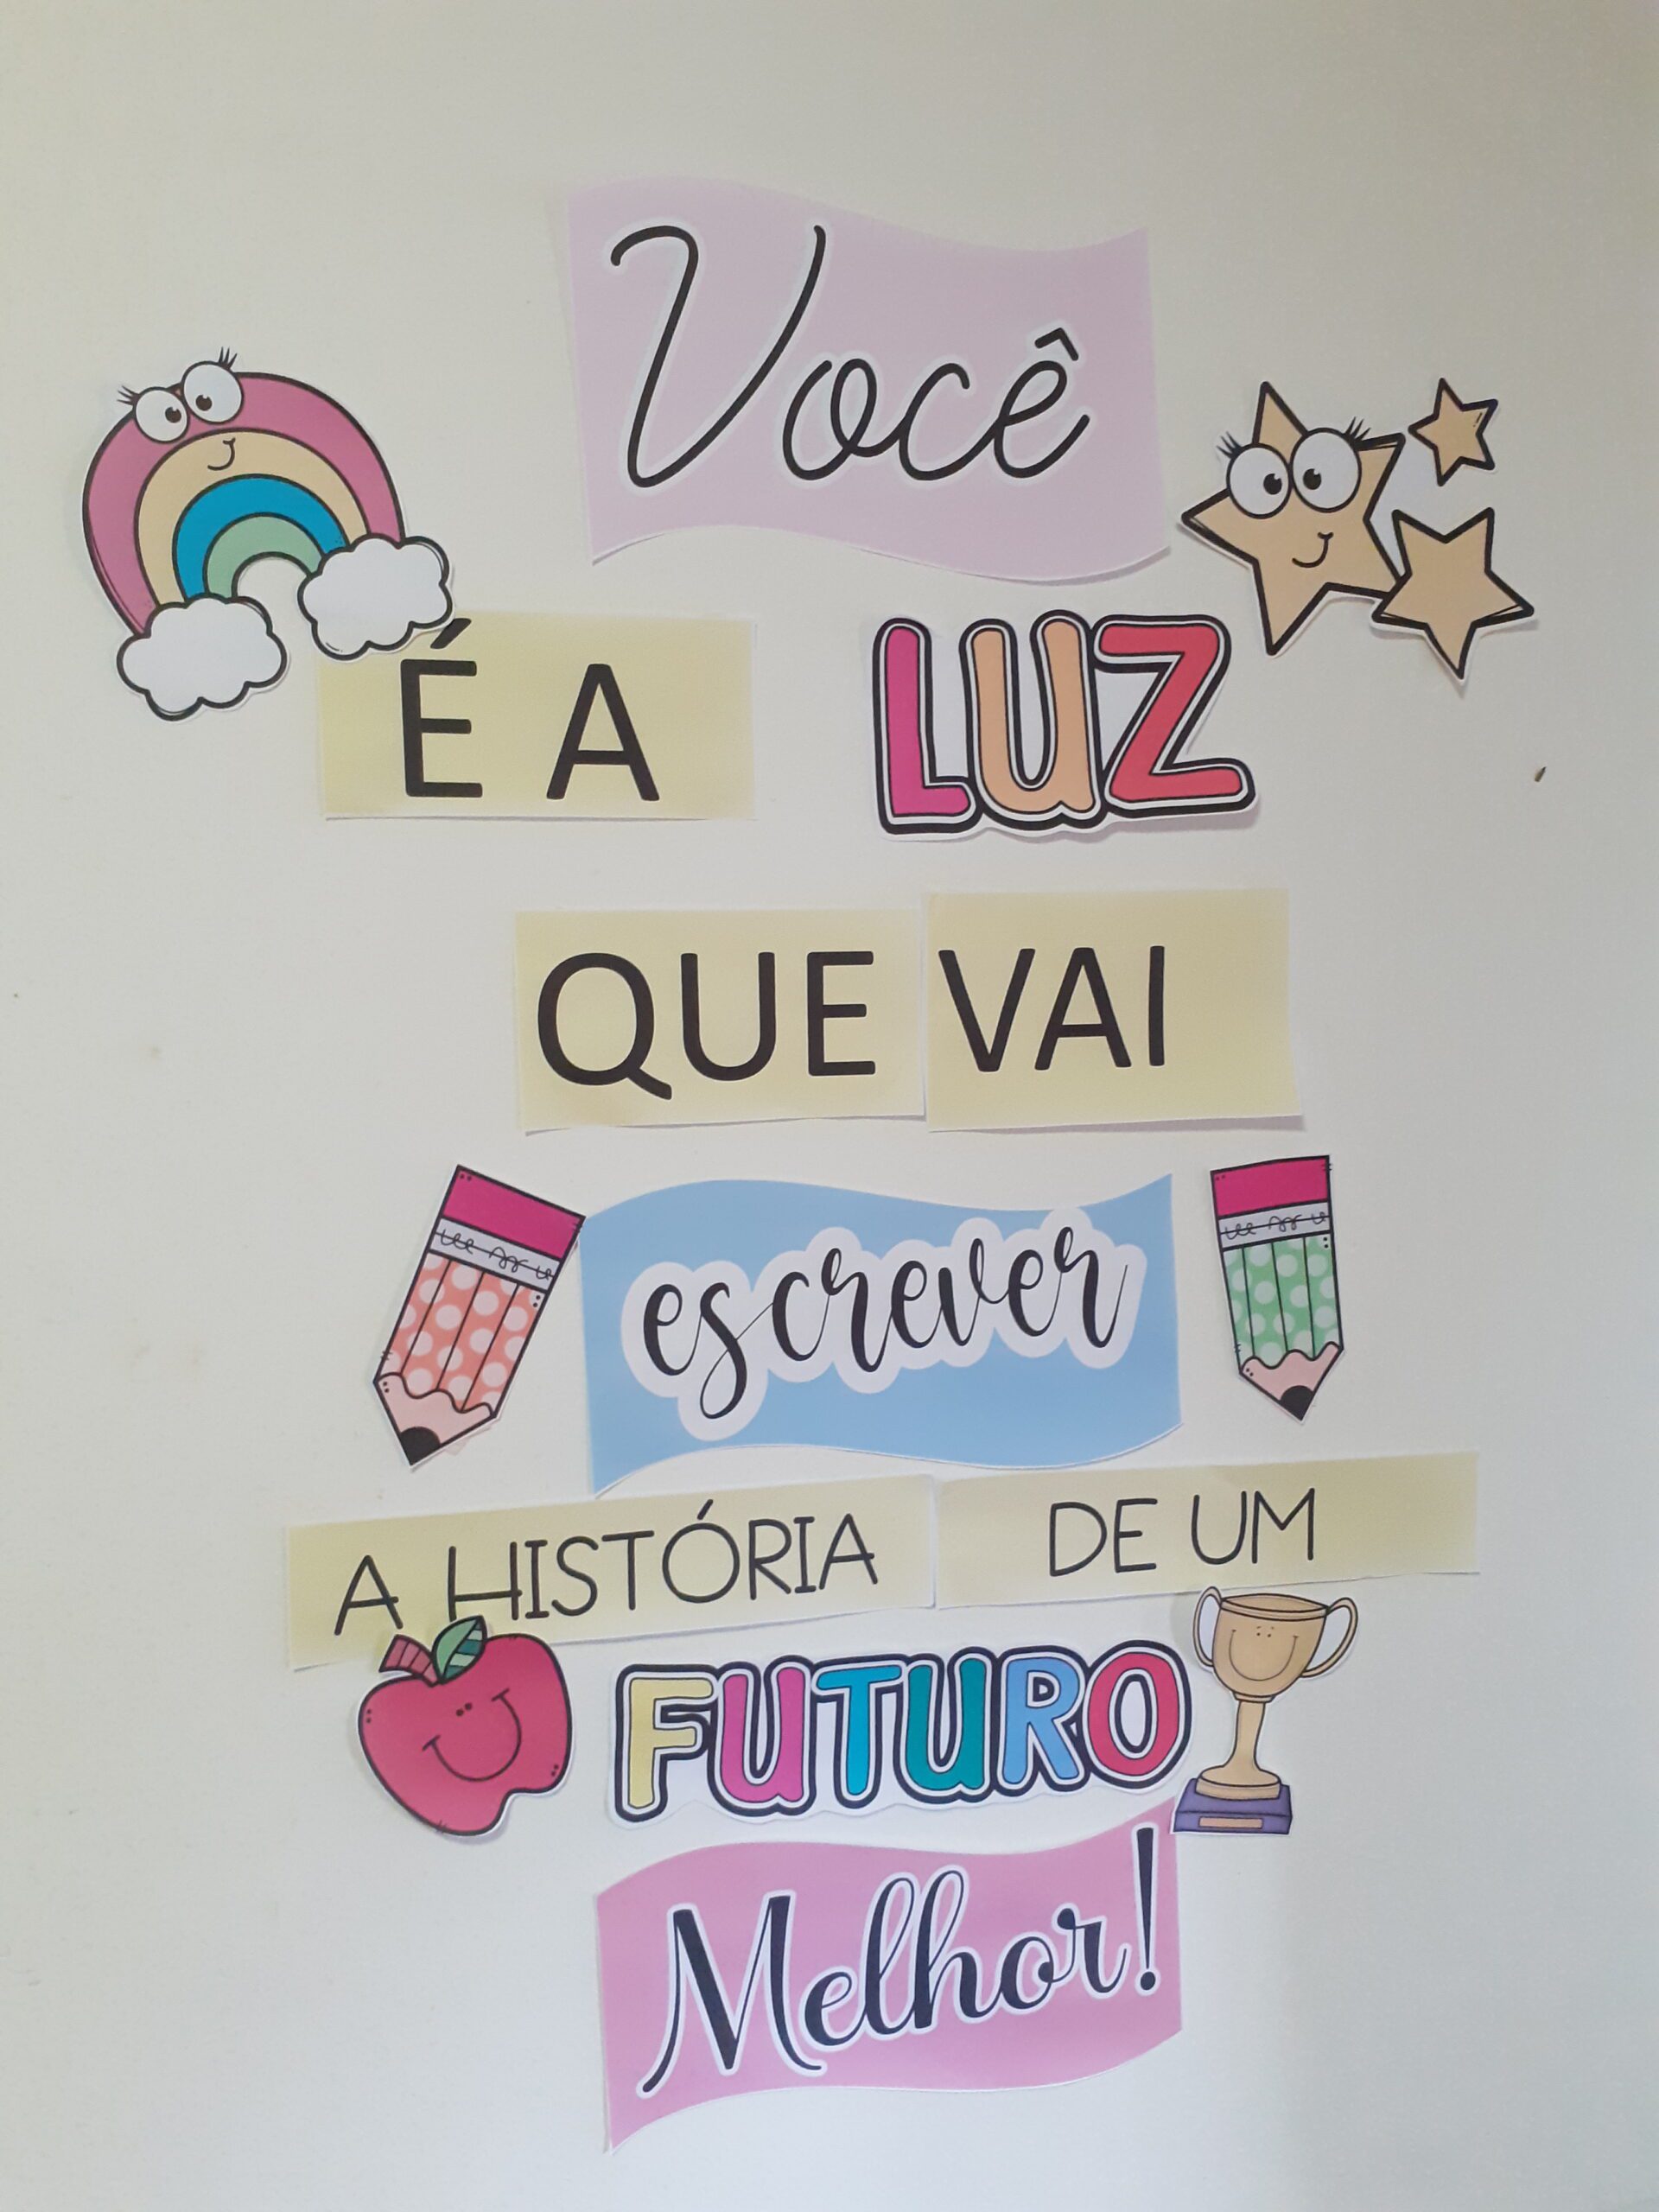 Você
É A LUZ
QUE VAI
escrever
A HISTÓRIA DE UM
FUTURO
Melhor!